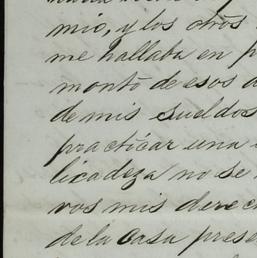 mio, y los otros
me hallaba en p
monto de esos a
de mis sueldos
practicar una
licadeza no se
vos mis derec
de la Casa prese